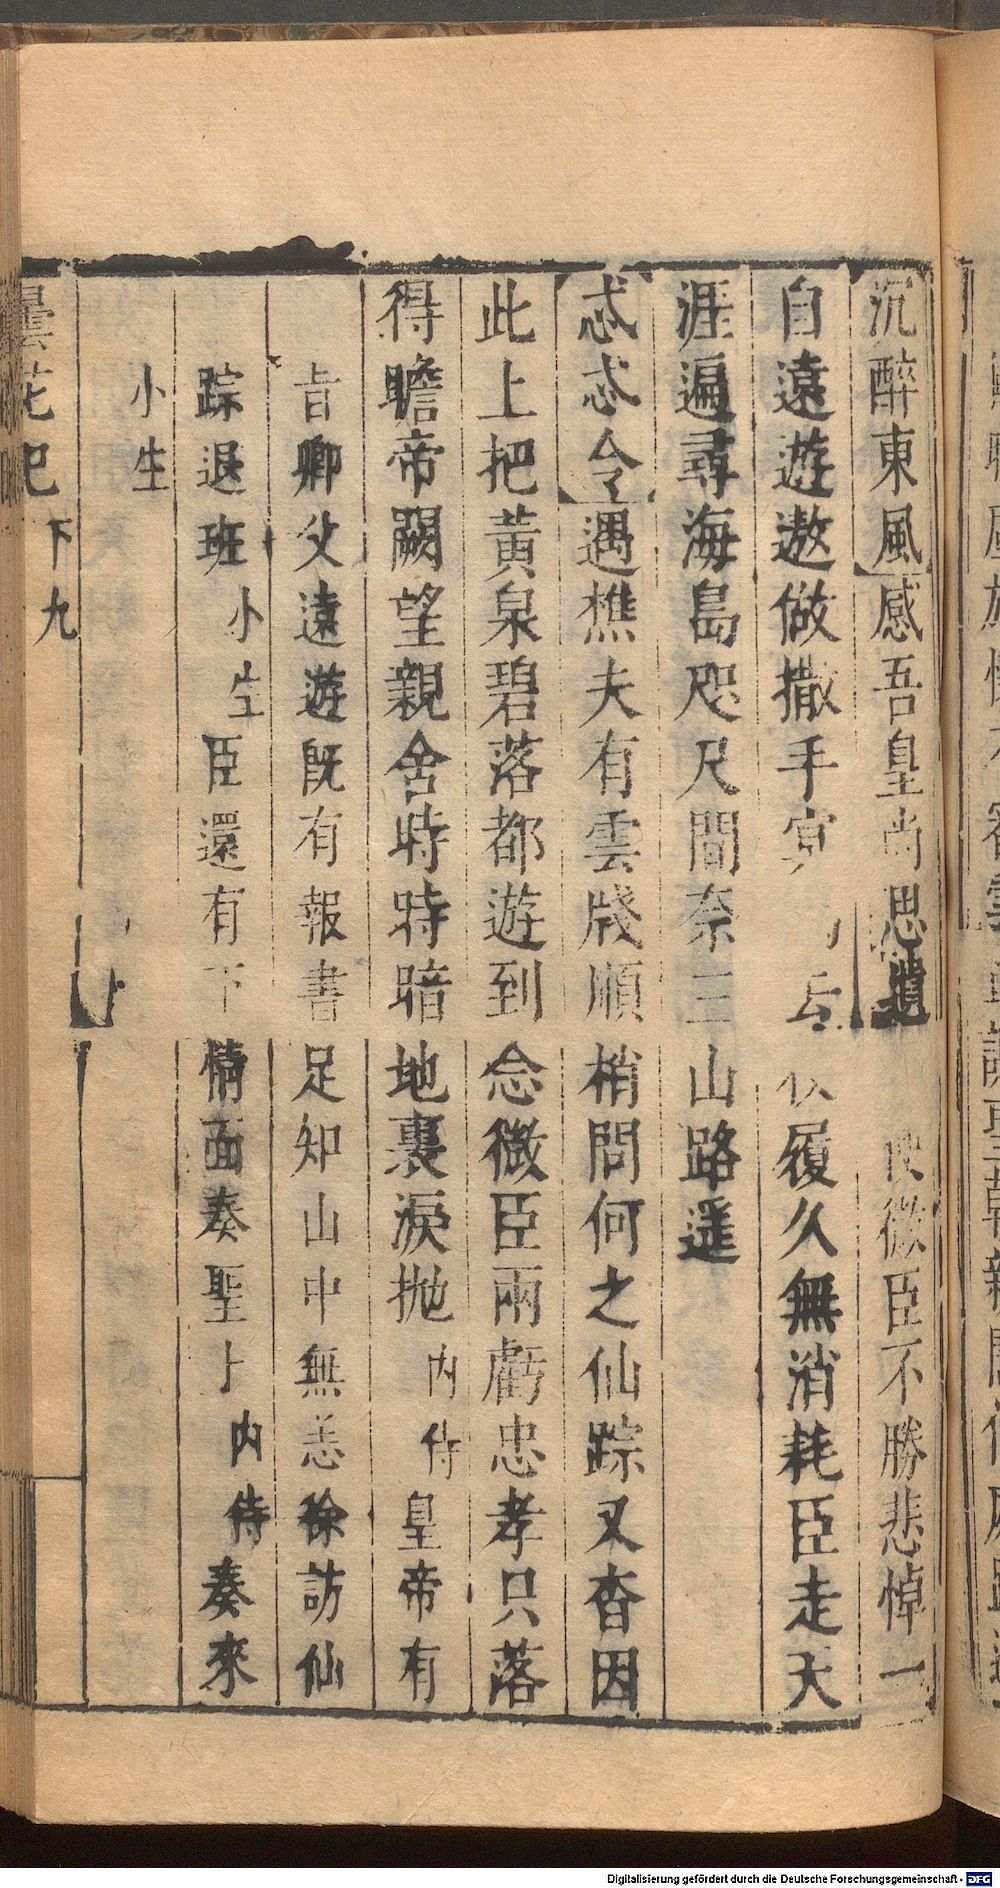 沉醉東風感吾皇尚思遺　微臣不勝悲悼一
自遠遊遨做撒手　履久無消耗臣走天
涯遍尋海島咫尺間奈三山路遥
忒忒令遇樵夫有雲牋順梢問何之仙踪又杳因
此上把黃泉碧落都遊到念微臣兩虧忠孝只落
得瞻帝闕望親舍時時暗地裏淚抛内侍皇帝有
旨卿父遠遊既有報書足知山中無恙徐訪仙
踪退班小生臣還有下情面奏聖上内侍奏來
小生
曇花記 下九
Digitalisierung gefördert durch die Deutsche Forschungsgemeinschaft - DFG